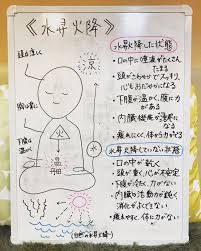 《水昇火降》
涼
水
火
温
頭は涼しく
胸は善く
下腹は温かく
水昇火降した状態
・口の中に唾液がたくさんたまる
・頭がさわやかでスッキリ、
心もおだやかになる
・下腹が温かく、腹に力がある
・内臓機能が活発になる
・疲れにくく、体から力がでる
水昇火降していない状態
・口の中が乾く
・頭が重く、心が不安定
・下腹が冷え、力がない
・内臓の活動が鈍く
消化がよくできない
・疲れやすく、体に力がない
(自然の水昇火降)